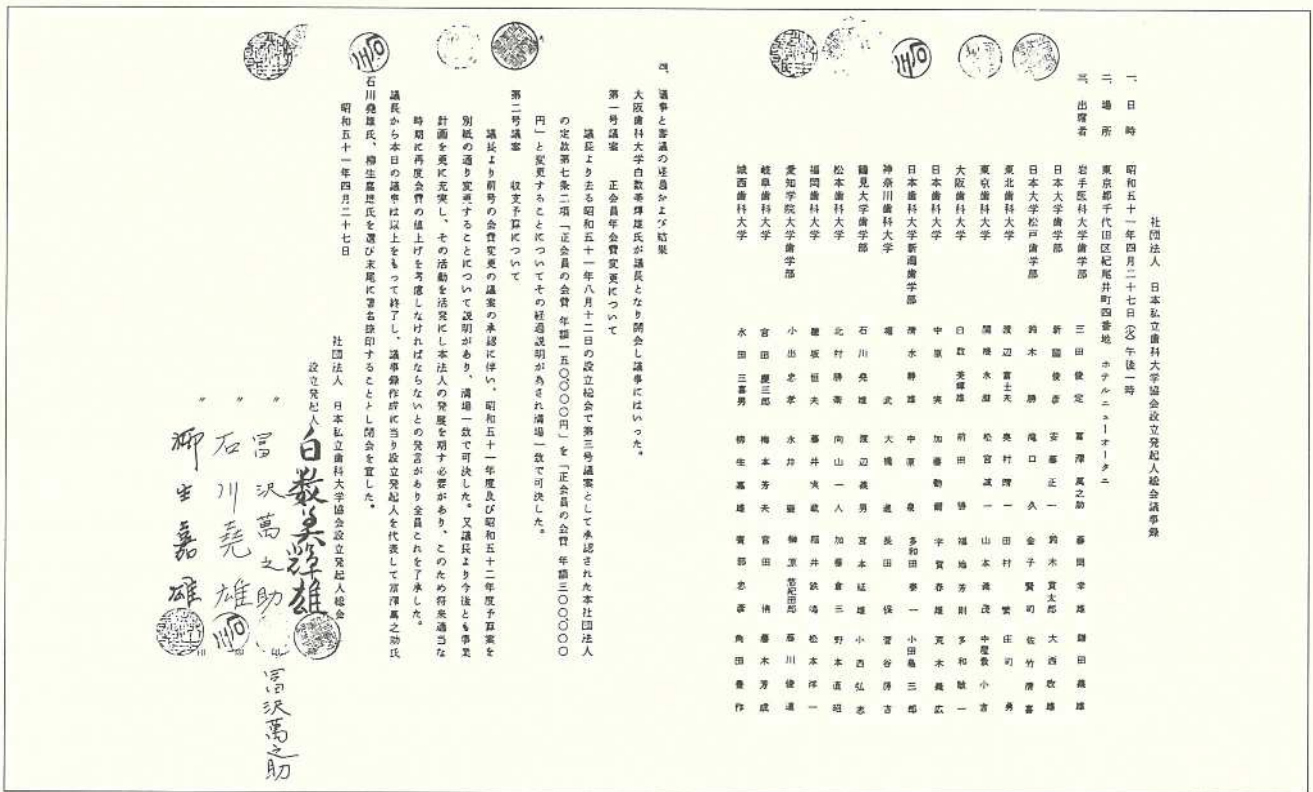 社団法人 日本私立歯科大学協会設立発起人総会議事録
一、日時 昭和五十一年四月二十七日(火)午後一時
二、場所 東京都千代田区紀尾井町四番地 ホテルニューオータニ
三、出席者
岩手医科大学歯学部 三田俊定 冨澤萬之助 藤岡幸雄 鎌田義雄
日本大学歯学部 新国俊彦 安藤正一 鈴木貫太郎 大西政雄
日本大学松戸歯学部 鈴木勝 滝口久 金子賢司 佐竹清喜
東北歯科大学 渡辺富士夫 奥村晴一 田村繁 庄司勇
東京歯科大学 関根永滋 松宮誠一 山本義茂 中屋敷小吉
大阪歯科大学 白数美輝雄 前田勝 福地芳則 多和敏一
日本歯科大学 中原実 加藤勤爾 宇賀春雄 荒木義広
日本歯科大学新潟歯学部 清水静雄 中原泉 多和田泰一 小田島三郎
神奈川歯科大学 武 大橋 長田保 菅谷勝吉
鶴見大学歯学部 石川堯雄 渡辺義男 宮本延雄 小西弘志
松本歯科大学 北村勝衛 向山一人 加藤倉三 野本直昭
福岡歯科大学 穂坂恒夫 藤井実蔵 稲井 松本洋一
愛知学院大学歯学部 小出忠孝 永井 榊原悠紀田郎 藤川俊道
岐阜歯科大学 宮田慶三郎 梅本芳夫 宮田侑 藤木芳成
城西歯科大学 水田三喜男 柳生嘉雄 忠彦 角田豊作
四、議事と審議の経過および結果
大阪歯科大学白数美輝雄氏が議長となり開会し議事にはいった。
第一号議案 正会員年会費変更について
議長より去る昭和五十一年八月十二日の設立総会で第三号議案として承認された本社団法人
の定款第七条二項「正会員の会費 年額一五〇、〇〇〇円」を「正会員の会費 年額三〇〇、〇〇〇
円」と変更することについてその経過説明が為され満場一致で可決した。
第二号議案 収支予算について
議長より前号の会費変更の議案の承認に伴い、昭和五十一年度及び昭和五十二年度予算案を
別紙の通り変更することについて説明があり、満場一致で可決した。又議長より今後とも事業
計画を更に充実し、その活動を活発にし本法人の発展を期す必要があり、このため将来適当な
時期に再度会費の値上げを考慮しなければならないとの発言があり全員これを了承した。
議長から本日の議事は以上をもって終了し、議事録作成に当り設立発起人を代表して冨澤萬之助氏
石川堯雄氏、柳生嘉雄氏を選び末尾に署名捺印することとし閉会を宣した。
昭和五十一年四月二十七日
社団法人 日本私立歯科大学協会設立発起人総会
設立発起人 白数美輝雄
〃 冨沢萬之助 冨沢萬之助
〃 石川堯雄
〃 柳生嘉雄